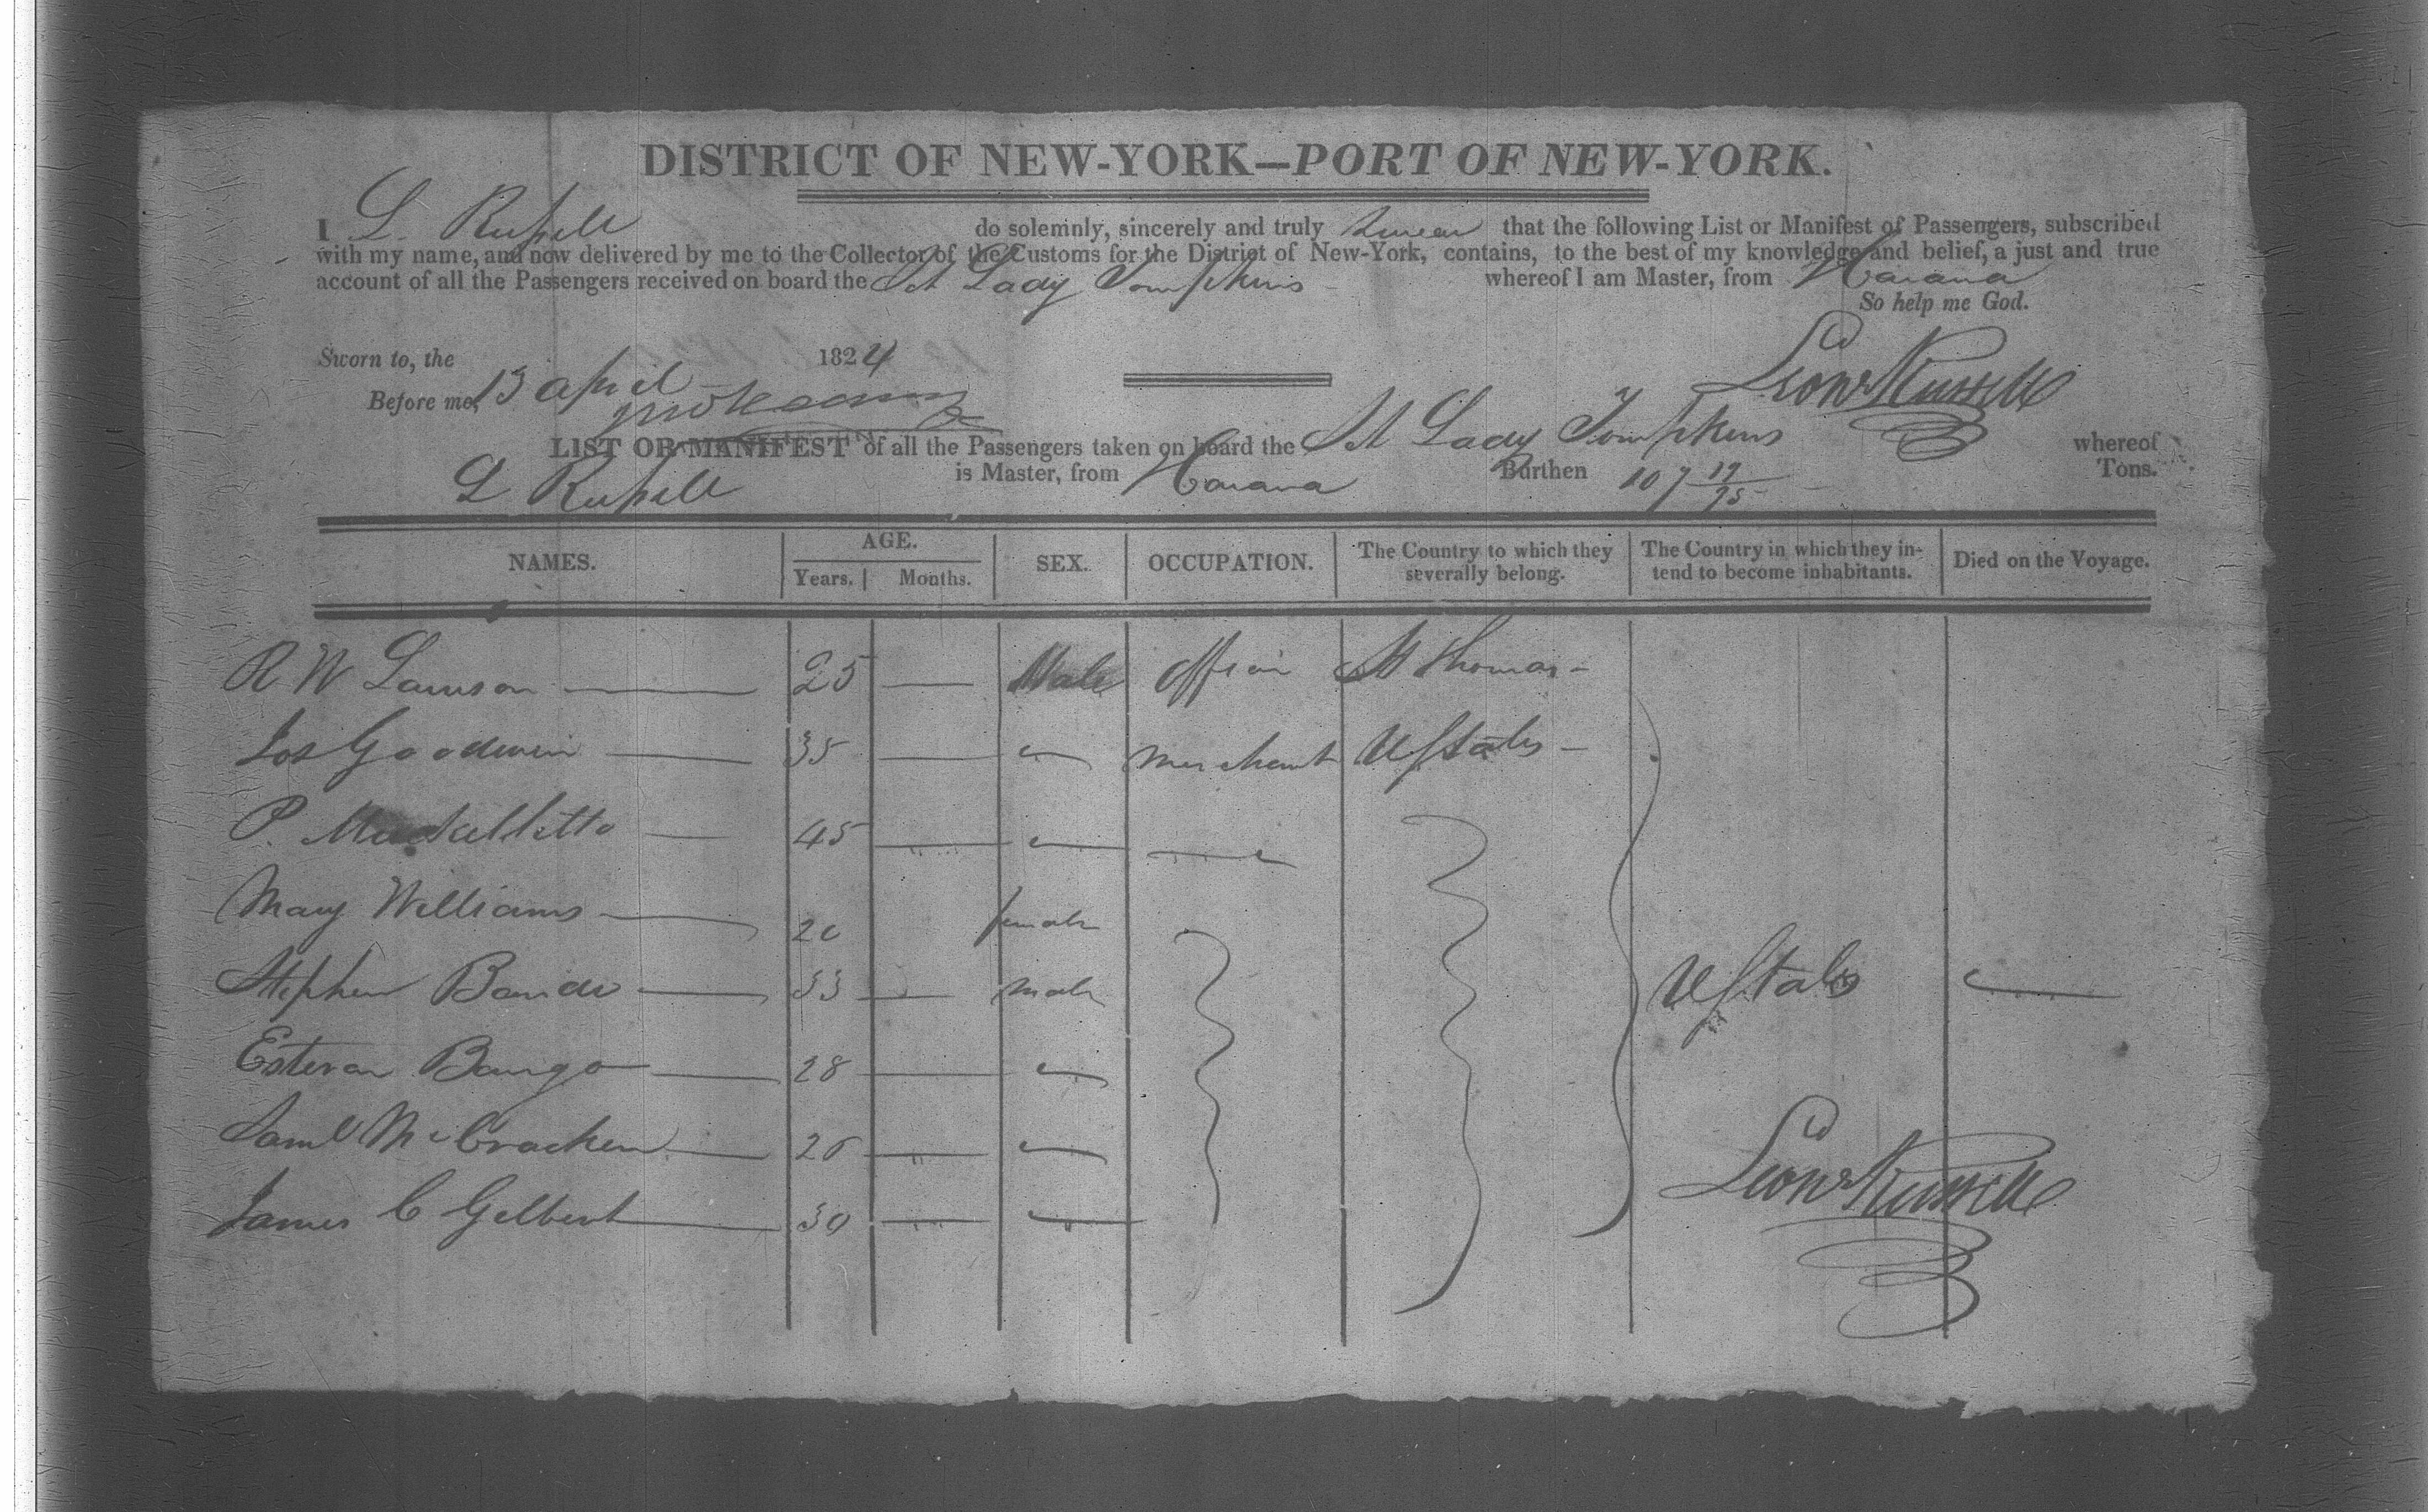 DISTRICT OF NEW-YORK—PORT OF NEW-YORK.
I L. Russell do solemnly, sincerely and truly swear that the following List or Manifest of Passengers, subscribed
with my name, and now delivered by me to the Collector of the Customs for the District of New-York, contains, to the best of my knowledge and belief, a just and true
account of all the Passengers received on board the Sch Lady Tompkins whereof I am Master, from Havana
So help me God.
Sworn to, the 13 april 1824
Before me,
Leond Russell
LIST OR MANIFEST of all the Passengers taken on board the Sch Lady Tompkins whereof
L Russell is Master, from Havana Burthen 107 17/95 Tons.
NAMES. AGE. Years. Months. SEX. OCCUPATION. The Country to which they severally belong. The Country in which they intend to become inhabitants. Died on the Voyage.
R W Lawson 25 — Male St Thomas -
Jos Goodwin 35 — merchant UStates -
P. 45
Mary Williams 20 female
Stephen 33 male UStates
Estevan Bango 28
Saml McCracken 26
James C Gelbert 30
Leond Russell